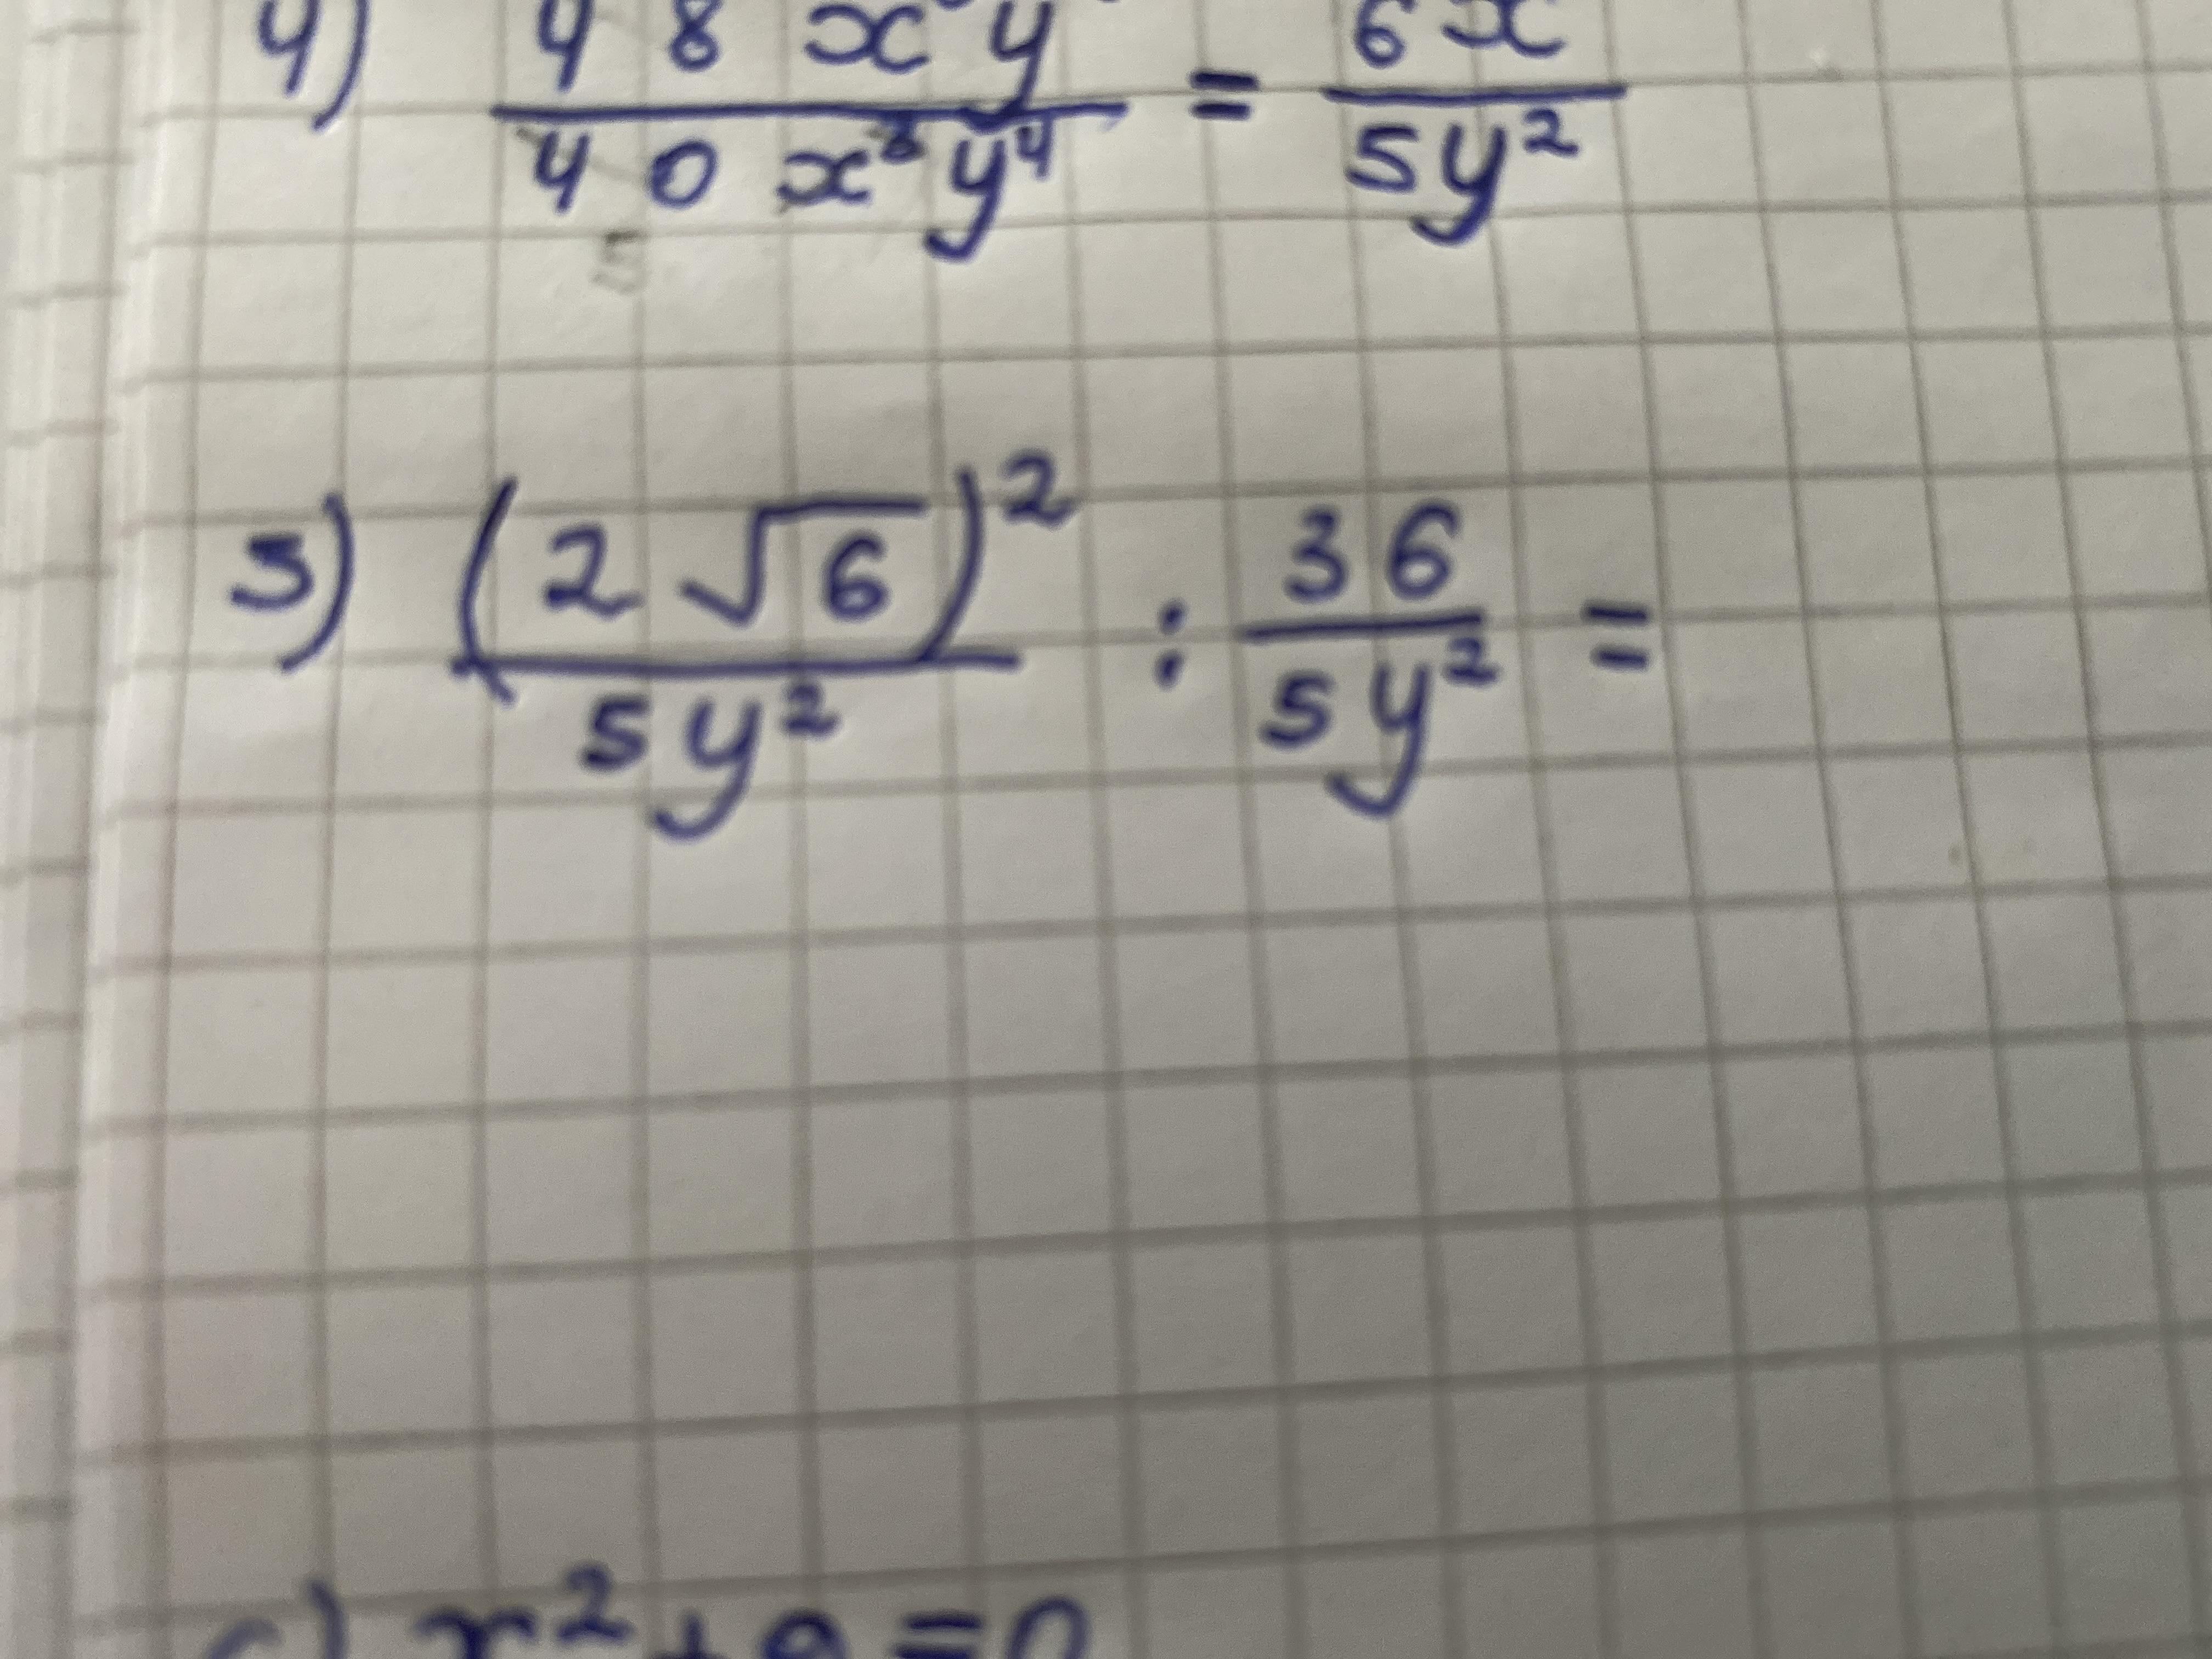 4) 48xy / 40x³y⁴ = 6x / 5y²
5) (2√6)² / 5y² : 36 / 5y² =
x² + 9 = 0